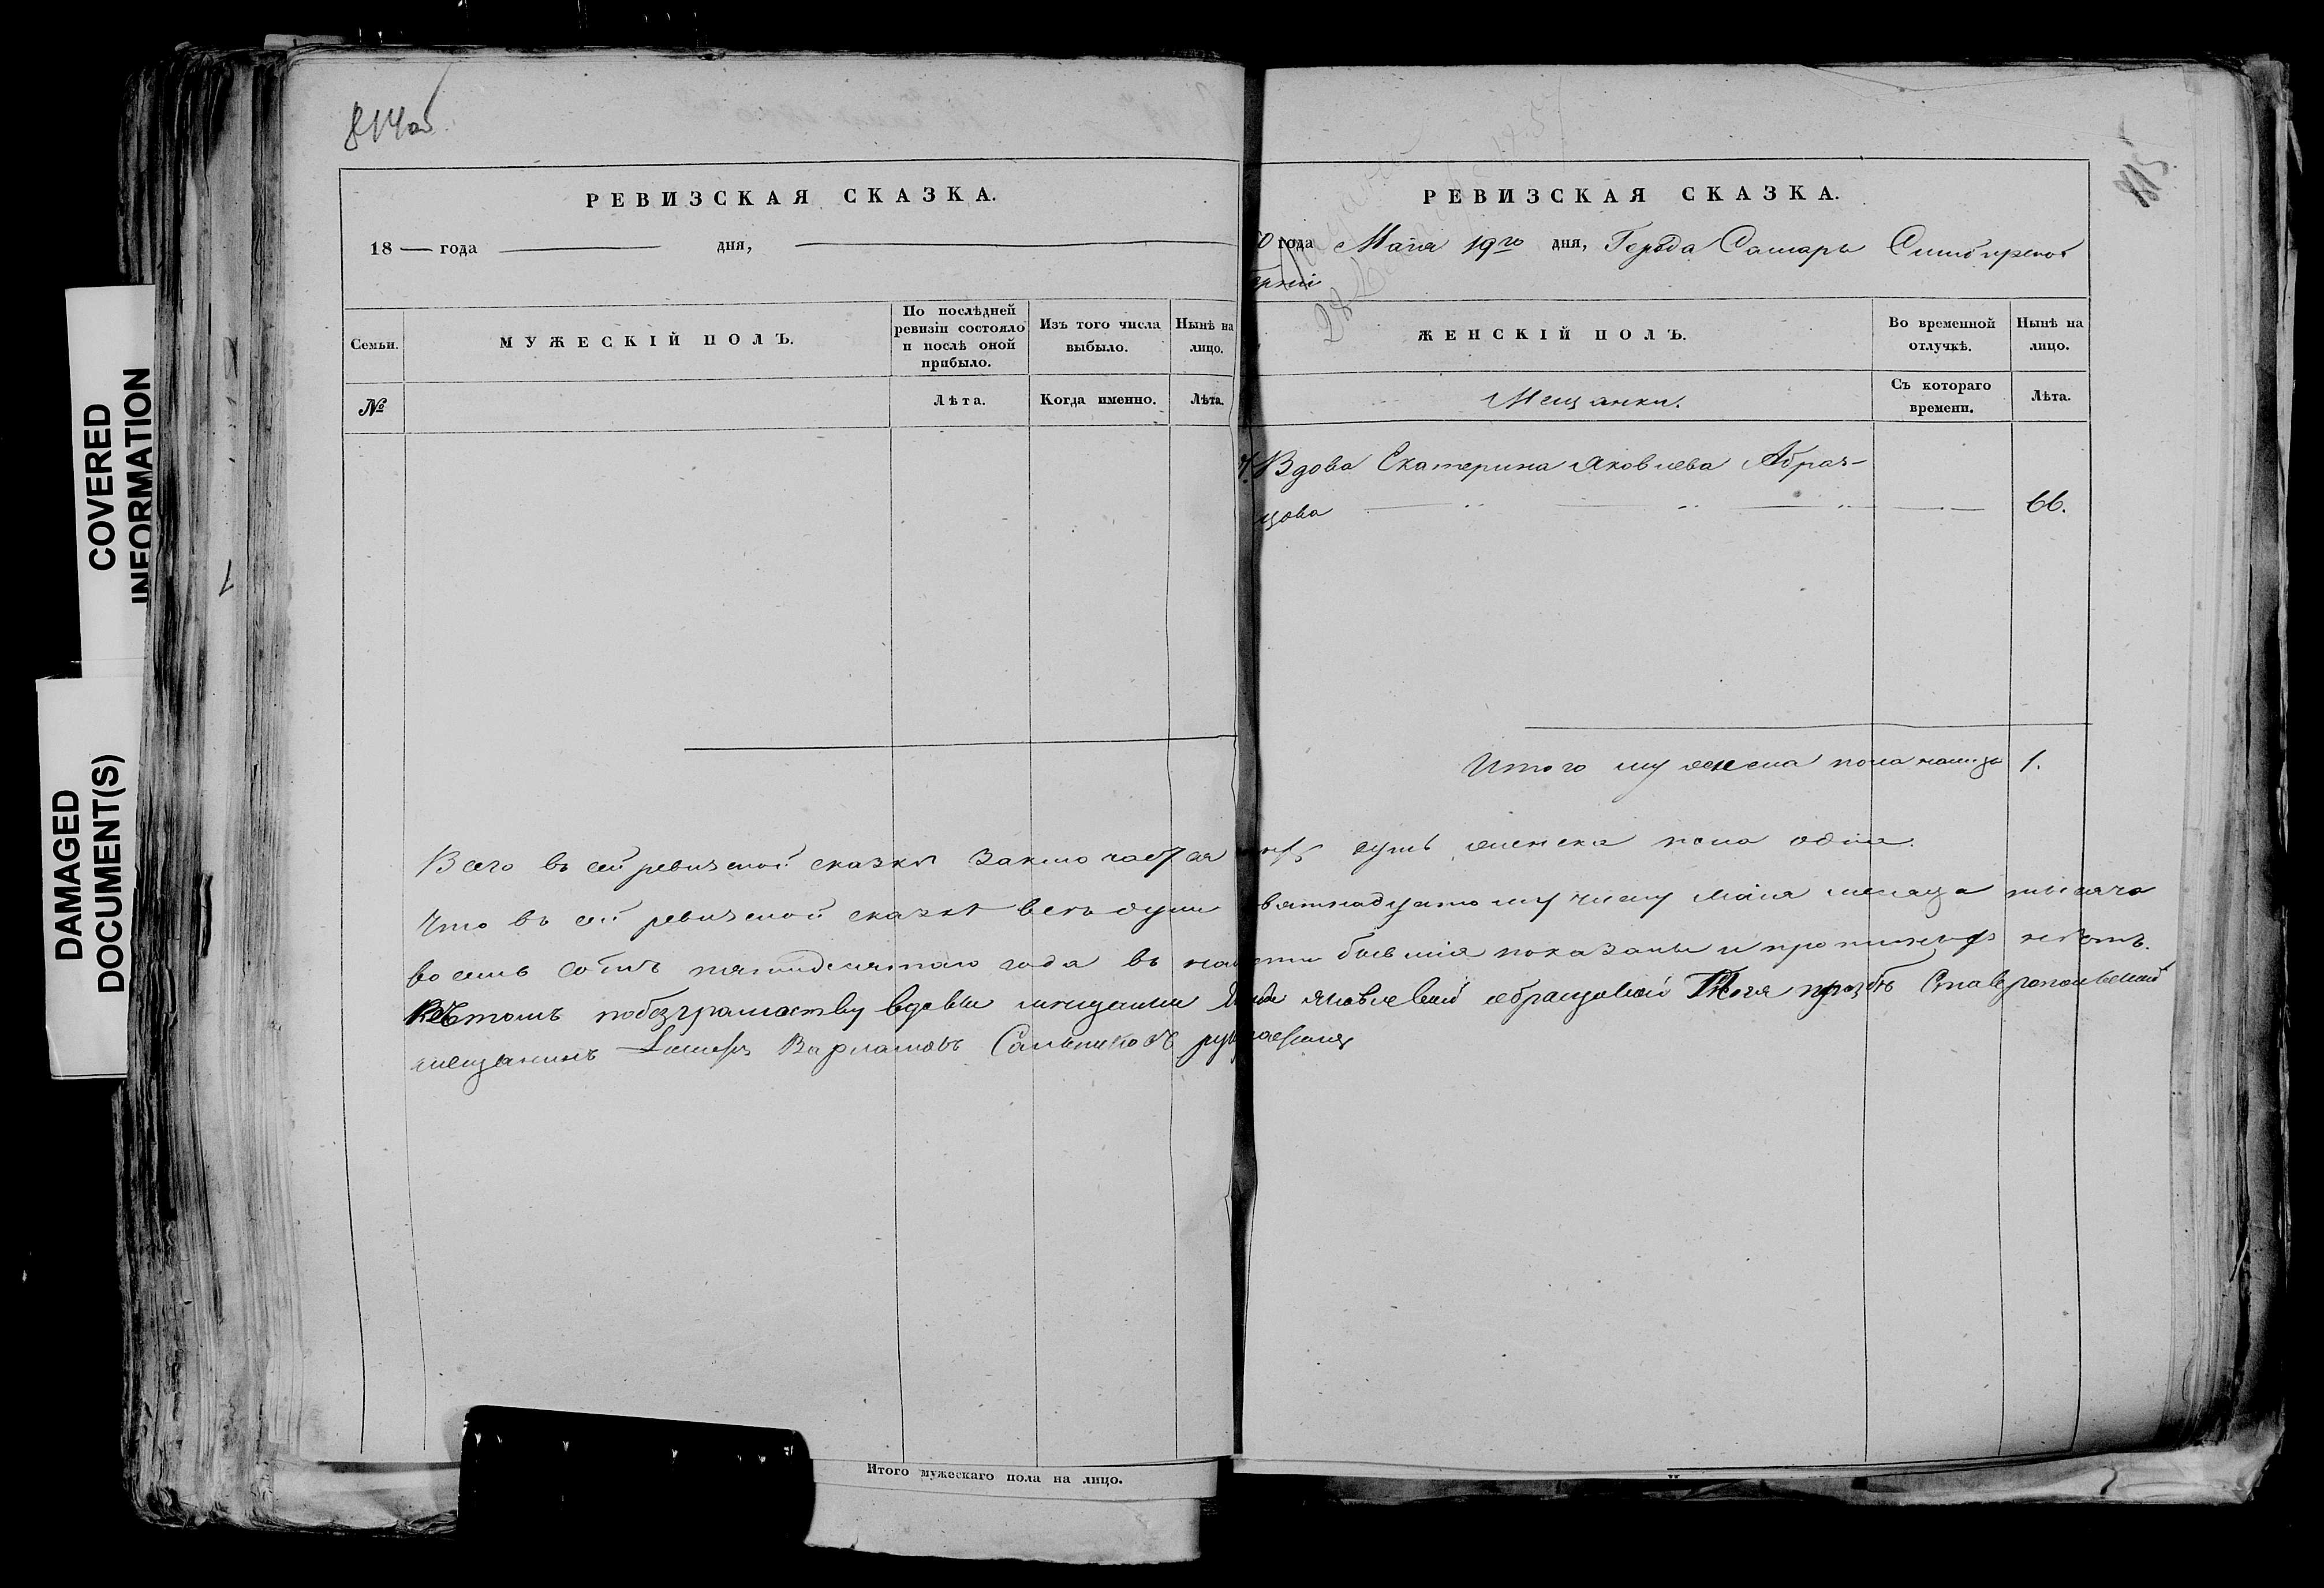 814об
РЕВИЗСКАЯ СКАЗКА.
18 — года — дня, —
Семьи.
МУЖЕСКІЙ ПОЛЪ.
По послѣдней ревизіи состояло и послѣ оной прибыло.
Изъ того числа выбыло.
Нынѣ на лицо.
№
Лѣта.
Когда именно.
Лѣта.
815
РЕВИЗСКАЯ СКАЗКА.
0 года Маія 19го дня, Города Самары Симбирской
ерніи
ЖЕНСКІЙ ПОЛЪ.
Во временной отлучкѣ.
Нынѣ на лицо.
Мещанки.
Съ котораго времени.
Лѣта.
Вдова Екатерина Яковлева Абраз-
цова — — — 66.
Итого женска пола налицо 1.
Всего въ сей ревизской сказкѣ заключается душъ женска пола одна.
Что въ сей ревизской сказкѣ всѣ души вятнадцатому числу Маія месяца тысяча
восемь сотъ пятидесятаго года въ бывшія показаны и нѣтъ.
Въ томъ побезграмоству вдовы мещанки Яковлевой абразцовой прозбѣ Ставропольской
мещанинъ Варламовъ Сальников
Итого мужескаго пола на лицо.
COVERED INFORMATION
DAMAGED DOCUMENT(S)